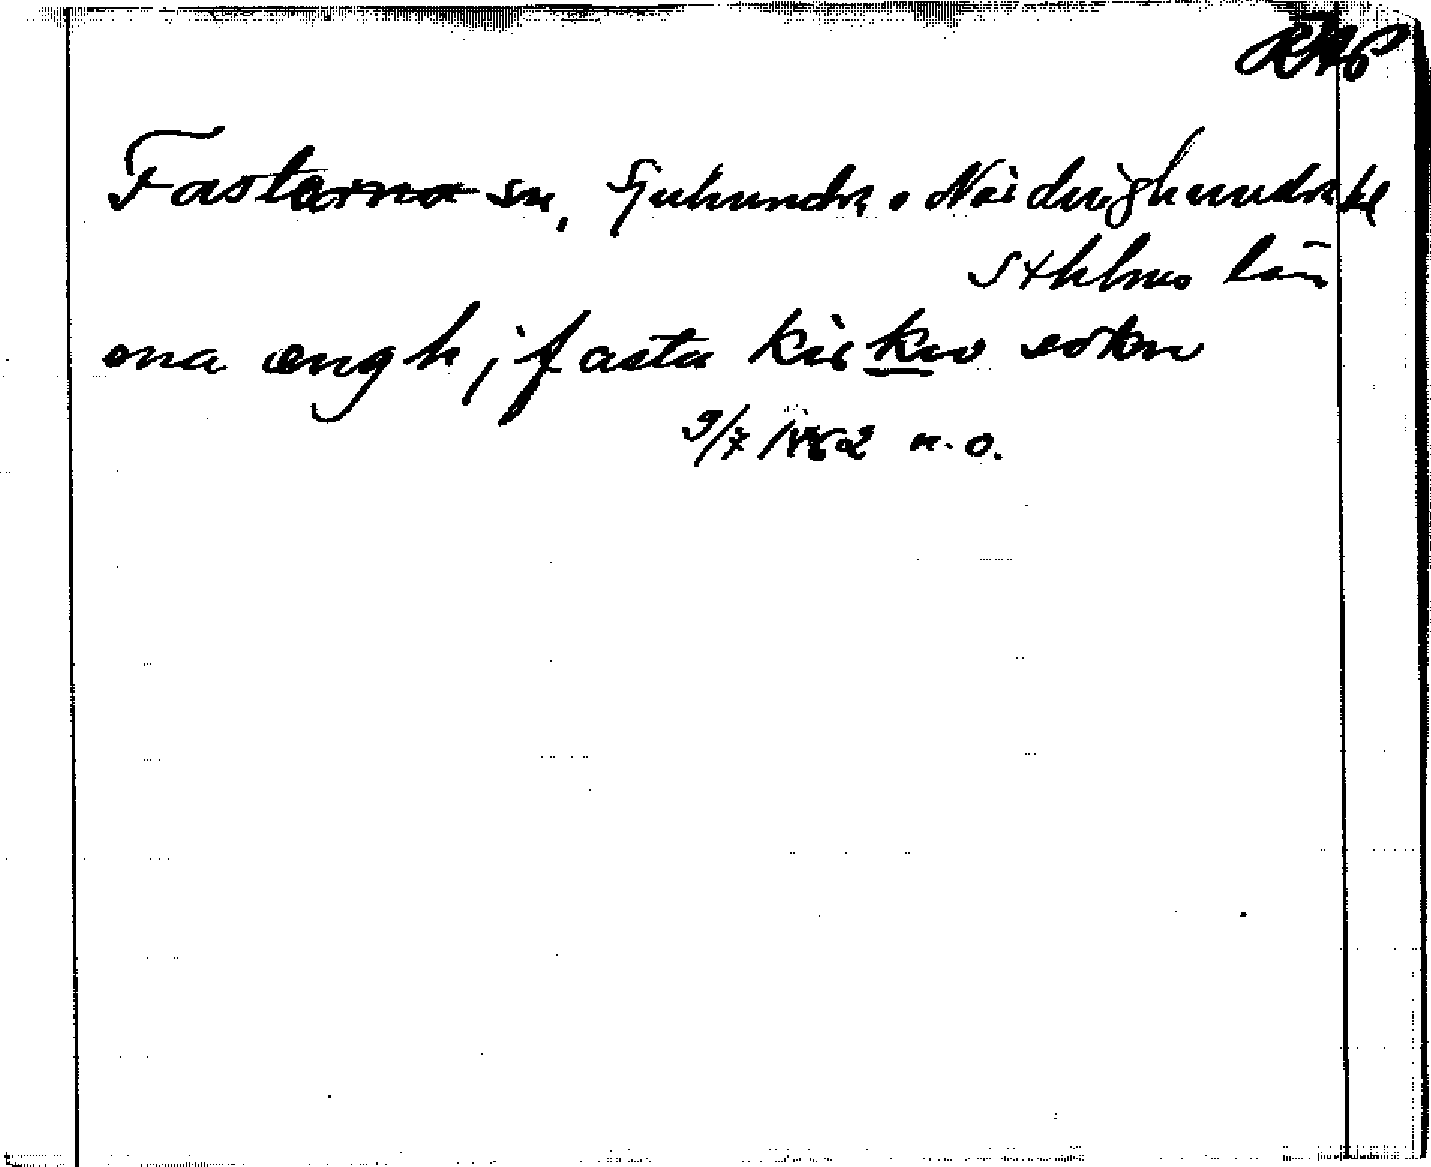 RAp
Fasterna sn, Sjuhundr. o Närdinghundra hd
Sthlms län
ona ængh j fasta kirkio sokn
9/7 1462 n.o.